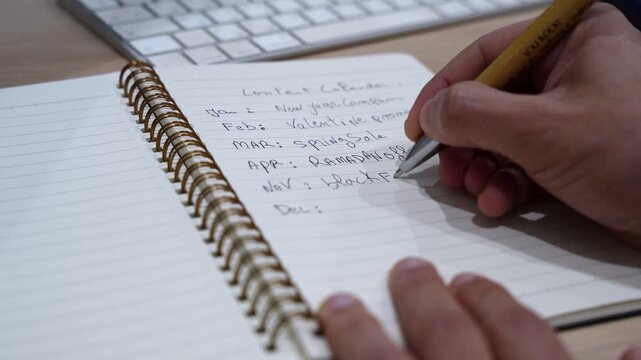 Content Calendar
Jan: New year Campaign
Feb: Valentine promo
MAR: SpringSale
APR: RAMADAN Off
NOV: black F
Dec:
YOU ROCK!